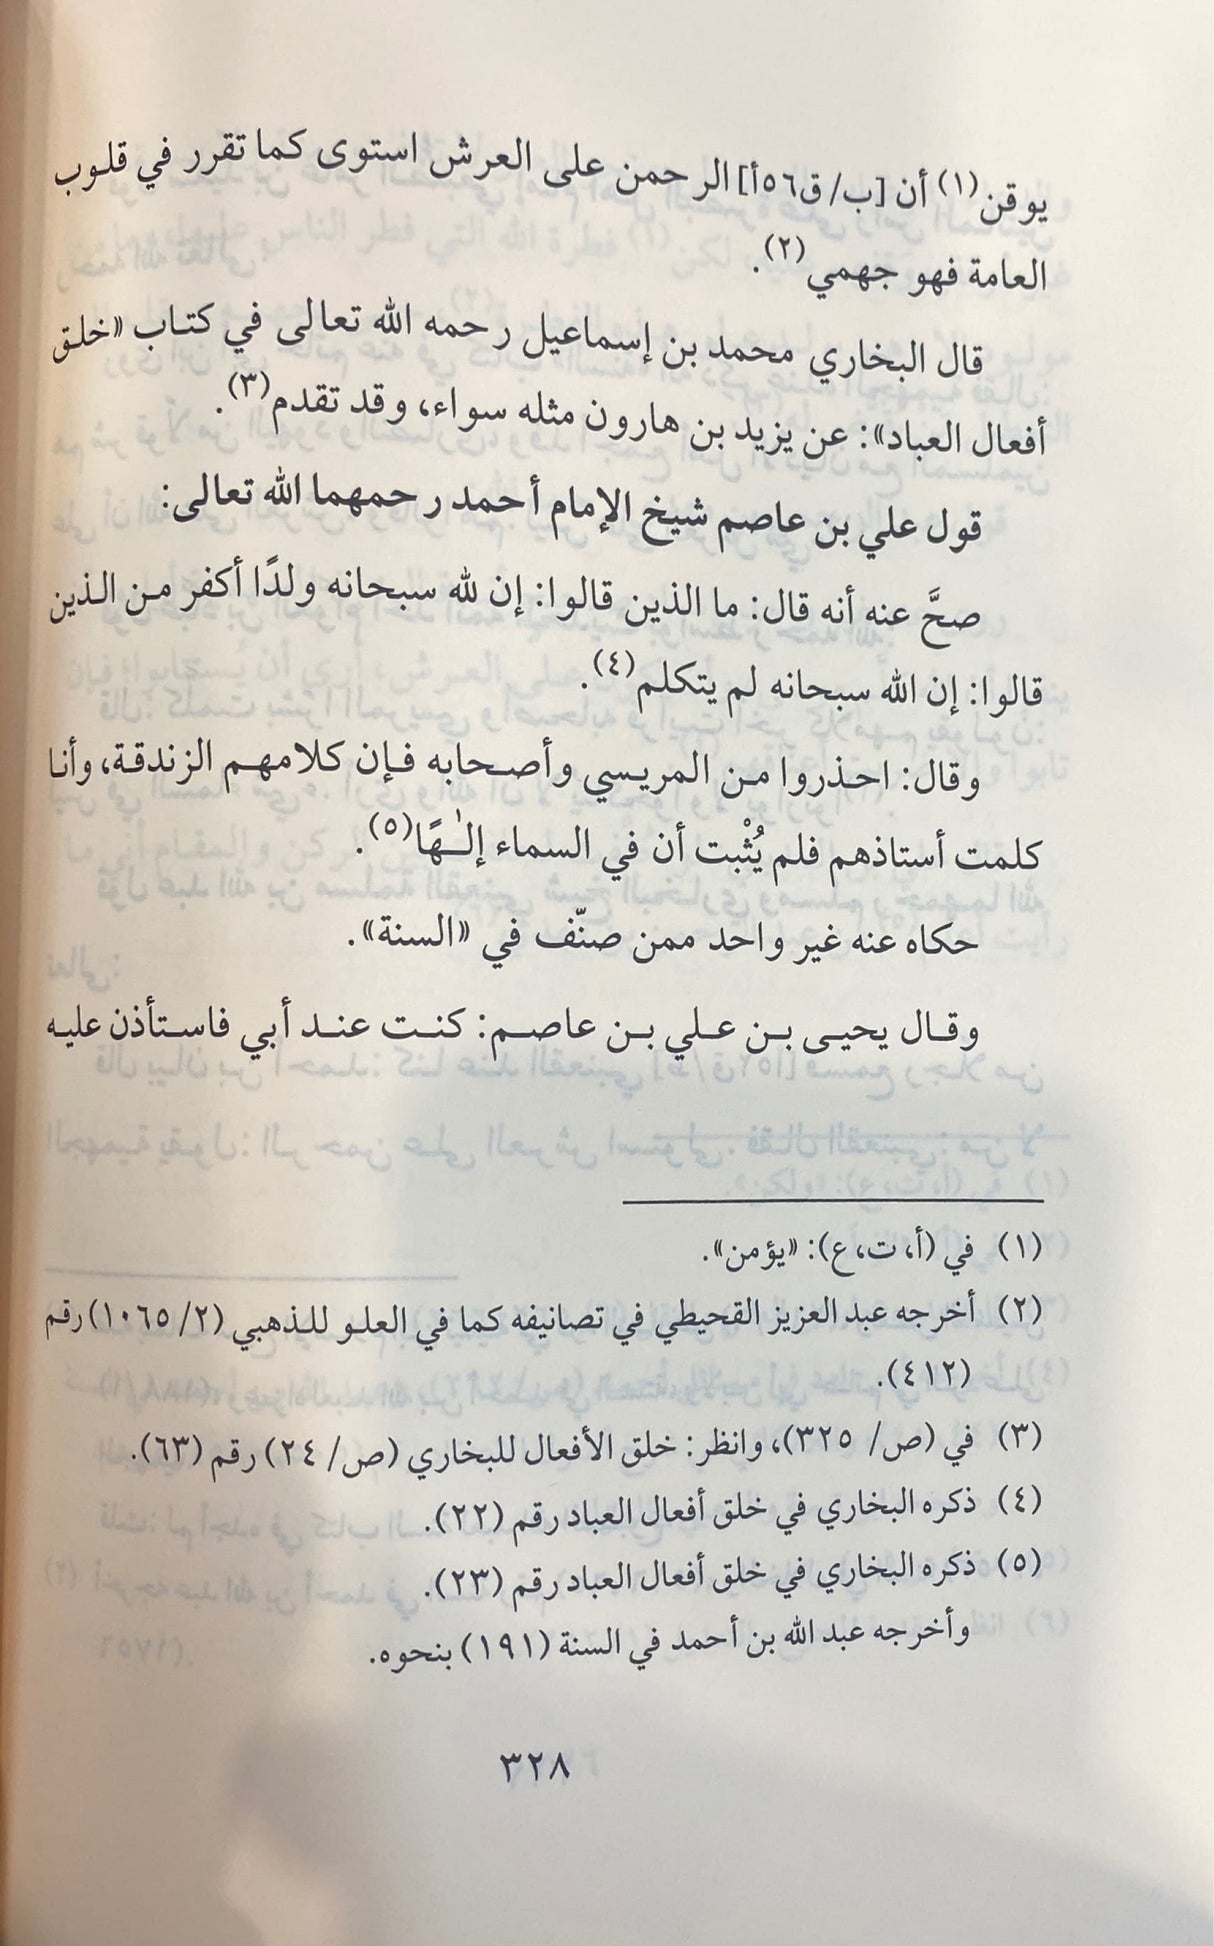 يوقن(١) أن [ب/ ق٥٦أ] الرحمن على العرش استوى كما تقرر في قلوب
العامة فهو جهمي(٢).
قال البخاري محمد بن إسماعيل رحمه الله تعالى في كتاب «خلق
أفعال العباد»: عن يزيد بن هارون مثله سواء، وقد تقدم(٣).
قول علي بن عاصم شيخ الإمام أحمد رحمهما الله تعالى:
صحَّ عنه أنه قال: ما الذين قالوا: إن لله سبحانه ولدًا أكفر من الذين
قالوا: إن الله سبحانه لم يتكلم(٤).
وقال: احذروا من المريسي وأصحابه فإن كلامهم الزندقة، وأنا
كلمت أستاذهم فلم يُثْبت أن في السماء إلـٰهًا(٥).
حكاه عنه غير واحد ممن صنّف في «السنة».
وقال يحيى بن علي بن عاصم: كنت عند أبي فاستأذن عليه
(١) في (أ، ت، ع): «يؤمن».
(٢) أخرجه عبد العزيز القحيطي في تصانيفه كما في العلو للذهبي (٢/ ١٠٦٥) رقم
(٤١٢).
(٣) في (ص/ ٣٢٥)، وانظر: خلق الأفعال للبخاري (ص/ ٢٤) رقم (٦٣).
(٤) ذكره البخاري في خلق أفعال العباد رقم (٢٢).
(٥) ذكره البخاري في خلق أفعال العباد رقم (٢٣).
وأخرجه عبد الله بن أحمد في السنة (١٩١) بنحوه.
٣٢٨